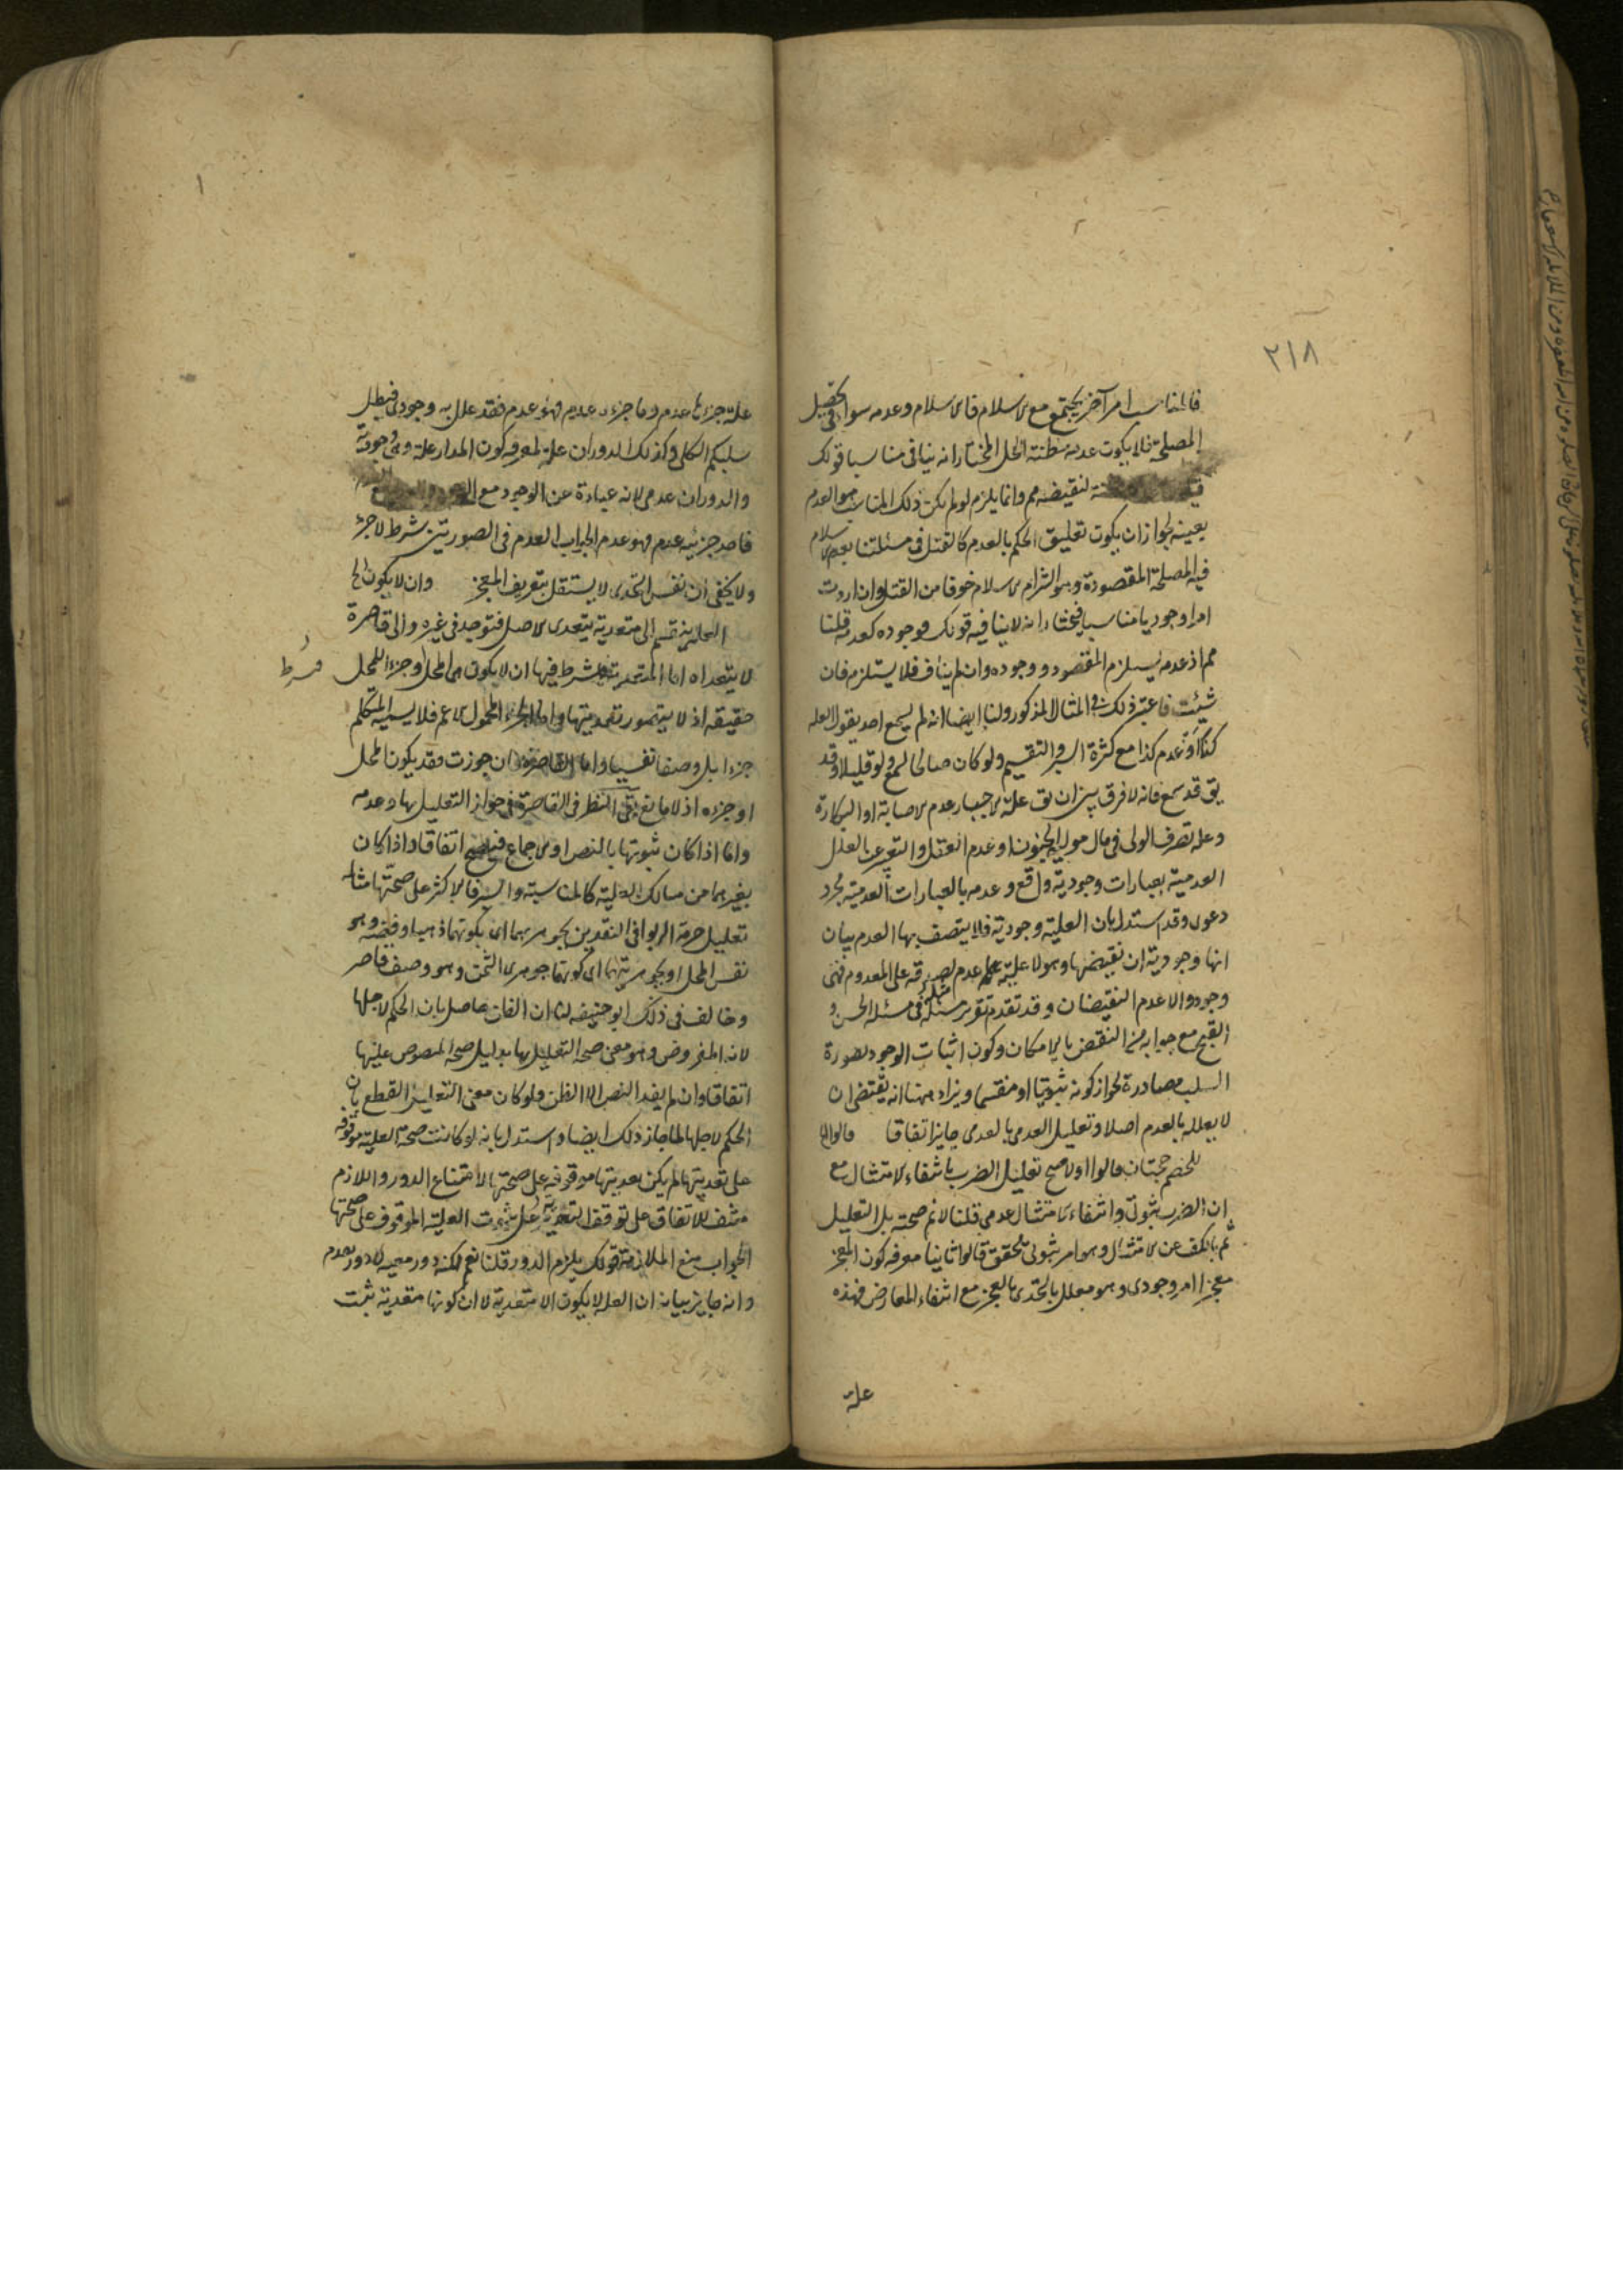 ٢١٨
فالمناسب امر آخر يجتمع مع الاسلام فالاسلام وعدمه سواء في تحصيل
المصلحة فلا يكون عدمه مظنته الحل المختار انه ينافي مناسبا قولك
لنقيضه مم وانما يلزم لو لم يكن ذلك المناسب هو العدم
بعينه لجواز ان يكون تعليق الحكم بالعدم كالقتل في مسئلتنا بعدم الاسلام
فيه المصلحة المقصودة وهو التزام الاسلام خوفا من القتل وان اردت
امرا وجوديا مناسبا فيختار انه لا ينافيه قولك فوجوده كعدمه قلنا
مم اذ عدمه يستلزم المقصود ووجوده وان لم يناف فلا يستلزم فان
شئت فاعتبر ذلك في المثال المذكور ولنا ايضا انه لم يسمع احد يقول العلة
كذا او عدم كذا مع كثرة السبر والتقسيم ولو كان صالحا لسمع ولو قليلا وقد
يق قد سمع فانه لا فرق بين ان يق علة الاجبار عدم الاصابة او البكارة
وعلة تصرف الولى فى مال موليه الجنون او عدم العقل والتعبير عن العلل
العدمية بعبارات وجودية واقع وعدمه بالعبارات العدمية مجرد
دعوى وقد استدل بان العلية وجودية فلا يتصف بها العدم بيان
انها وجودية ان نقيضها وهو لا علية عدم لصدقه على المعدوم فهى
وجود والا عدم النقيضان وقد تقدم تقرير مثله فى مسئلة الحسن و
القبح مع جوابه من النقض بالامكان وكون اثبات الوجود بصورة
السلب مصادرة لجواز كونه ثبوتيا او منقسما ويزاد هنا انه يقتضى ان
لا يعلل بالعدم اصلا وتعليل العدمى بالعدمى جايز اتفاقا قالوا الخ
للخصم حجتان قالوا اولا صح تعليل الضرب بانتفاء الامتثال مع
ان الضرب ثبوتى وانتفاء الامتثال عدمى قلنا لا نم صحته بل التعليل
ثم بالكف عن الامتثال وهو امر ثبوتى محقق قالوا ثانيا معرفة كون المعجز
معجزا امر وجودى وهو معلل بالتحدى بالمعجز مع انتفاء المعارض فهذه
علة
علة جزءها عدم وما جزءه عدم فهو عدم فقد علل به وجودى فبطل
سلبكم الكلى وكذلك الدوران علة لمعرفة كون المدار علة وهى وجودية
والدوران عدمى لانه عبارة عن الوجود مع
فاحد جزئيه عدم فهو عدم الجواب العدم فى الصورتين شرط لا جزء
ولا يخفى ان نفس التحدى لا يستقل بتعريف المعجز وان لا يكون الخ
العلة ينقسم الى متعدية يتعدى الاصل فتوجد فى غيره والى قاصرة
لا يتعداه اما المتعدية فشرط فيها ان لا يكون هى المحل او جزءا للمحل
حقيقة اذ لا يتصور تعديتها واما الجزء المحمول الاعم فلا يسميه المتكلم
جزءا بل وصفا نفسيا واما القاصرة ان جوزت فقد يكون المحل
او جزءه اذ لا مانع بقى النظر فى القاصرة فى جواز التعليل بها وعدمه
واما اذا كان ثبوتها بالنص او الاجماع فيصح اتفاقا واذا كان
بغيرهما من مسالك العلية كالمناسبة والسبر فالاكثر على صحتها مثاله
تعليل حرمة الربوا فى النقدين بجوهرهما اى بكونهما ذهبا وفضة وهو
نفس المحل او بجوهريتهما اى كونها جوهرى الثمن وهو وصف قاصر
وخالف فى ذلك ابو حنيفة لنا ان الظن حاصل بان الحكم لاجلها
لانه المفروض وهو معنى صحة التعليل بها بدليل صحة المنصوص عليها
اتفاقا وان لم يفد النص الا الظن ولو كان معنى التعليل القطع بان
الحكم لاجلها لما جاز ذلك ايضا واستدل بانه لو كانت صحة العلية موقوفة
على تعديتها لم يكن تعديتها موقوفة على صحتها لامتناع الدور واللازم
منتف للاتفاق على توقف التعدية على ثبوت العلية الموقوف على صحتها
الجواب منع الملازمة قولك يلزم الدور قلنا نعم لكنه دور معية لا دور تقدم
وانه جايز بيانه ان العلة لا يكون الا متعدية لا ان كونها متعدية ثبت